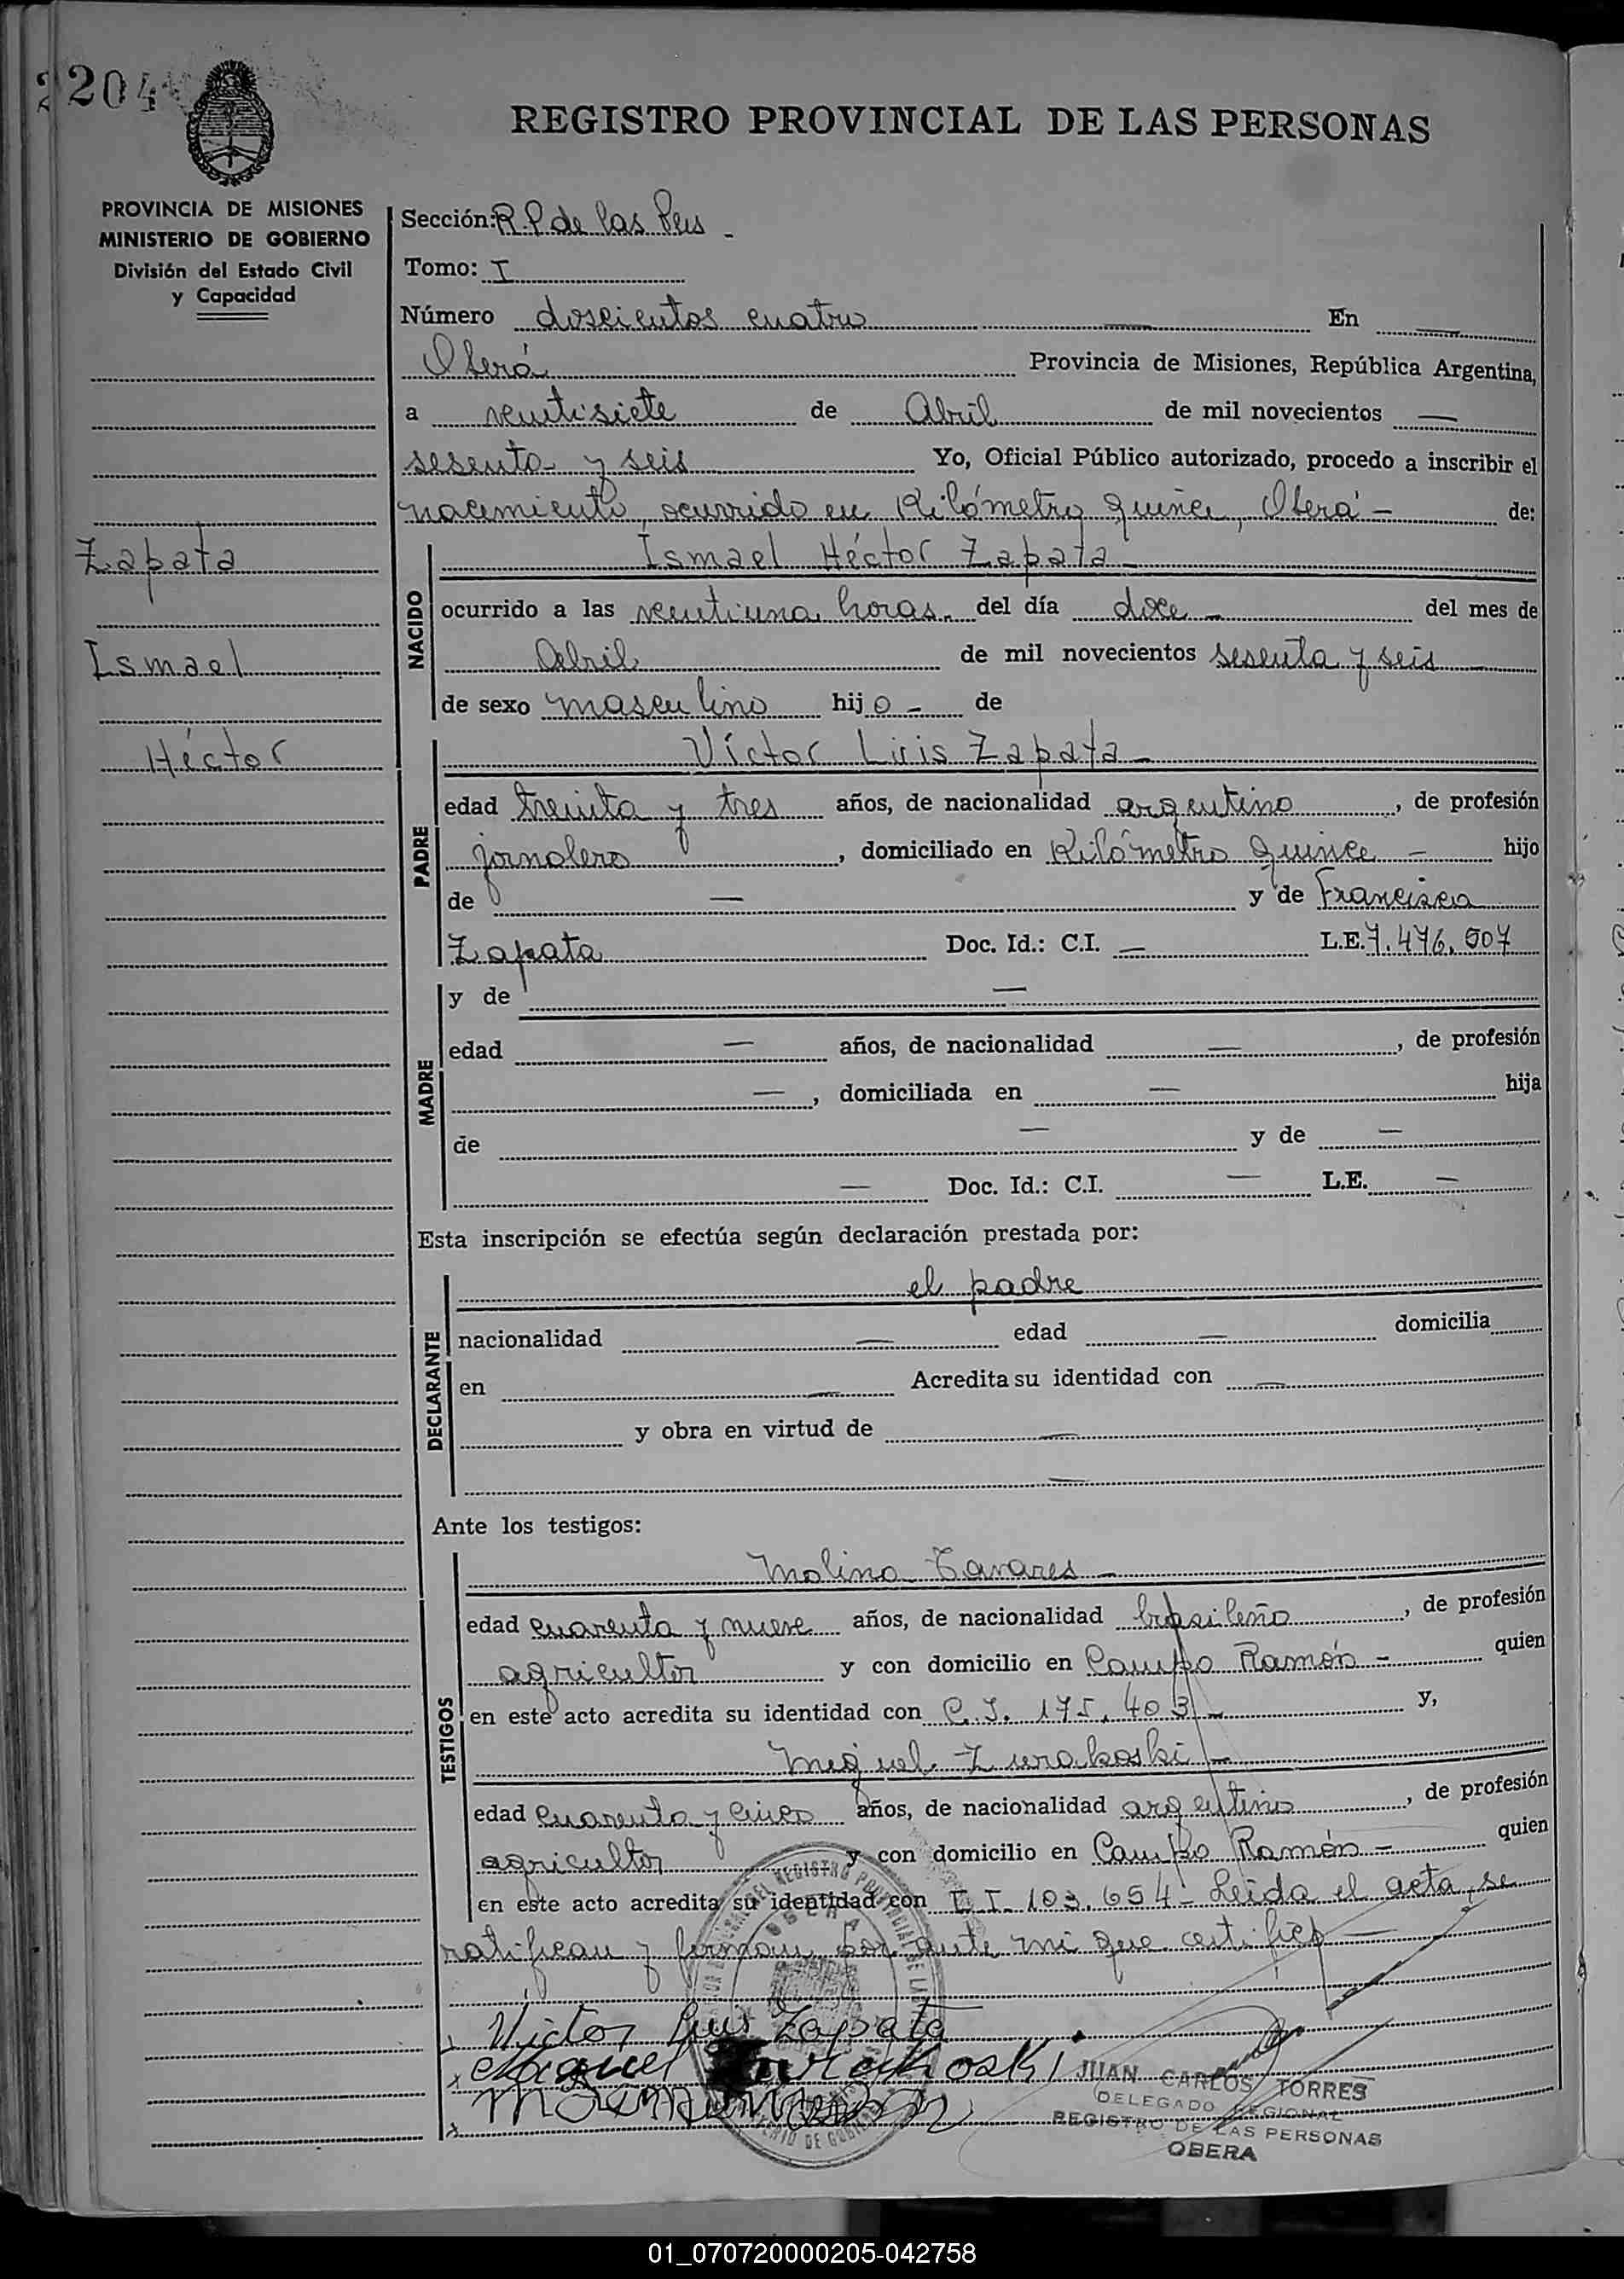 204
REGISTRO PROVINCIAL DE LAS PERSONAS
PROVINCIA DE MISIONES
MINISTERIO DE GOBIERNO
División del Estado Civil
y Capacidad
Zapata
Ismael
Héctor
Sección: R.P. de las Pers -
Tomo: I
Número doscientos cuatro — En —
Oberá Provincia de Misiones, República Argentina,
a veintisiete de Abril de mil novecientos —
sesenta y seis Yo, Oficial Público autorizado, procedo a inscribir el
nacimiento, ocurrido en Kilómetro quince, Oberá - de:
NACIDO
Ismael Héctor Zapata -
ocurrido a las veintiuna horas. del día doce - del mes de
Abril de mil novecientos sesenta y seis -
de sexo masculino hijo - de
PADRE
Víctor Luis Zapata -
edad treinta y tres años, de nacionalidad argentino, de profesión
jornalero, domiciliado en Kilómetro Quince - hijo
de — y de Francisca
Zapata Doc. Id.: C.I. — L.E. 7.476.507
MADRE
y de —
edad — años, de nacionalidad —, de profesión
—, domiciliada en — hija
de — y de —
— Doc. Id.: C.I. — L.E. —
Esta inscripción se efectúa según declaración prestada por:
DECLARANTE
el padre
nacionalidad — edad — domicilia
en — Acredita su identidad con —
y obra en virtud de —
—
Ante los testigos:
TESTIGOS
Molino Tavares -
edad cuarenta y nueve años, de nacionalidad brasileño, de profesión
agricultor y con domicilio en Campo Ramón - quien
en este acto acredita su identidad con C.I. 175.403 - y,
Miguel Zurakoski -
edad cuarenta y cinco años, de nacionalidad argentino, de profesión
agricultor y con domicilio en Campo Ramón - quien
en este acto acredita su identidad con C.I. 103.654 - Leída el acta, se
ratifican y firman por ante mi que certifico —
Victor Luis Zapata
Miguel Zurakoski
JUAN CARLOS TORRES
DELEGADO REGIONAL
REGISTRO DE LAS PERSONAS
OBERA
01_070720000205-042758